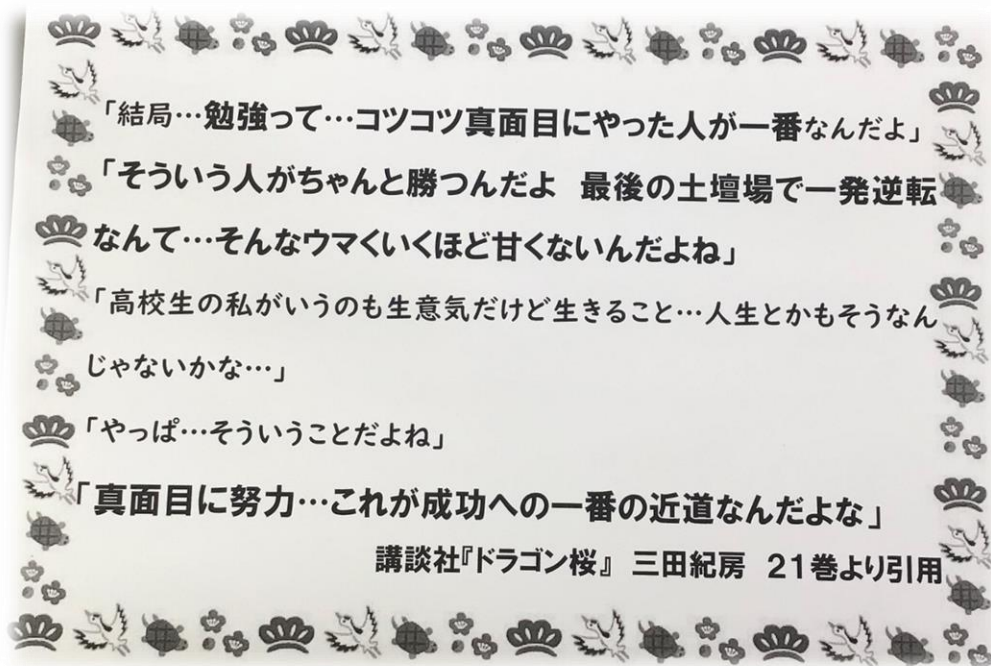 「結局…勉強って…コツコツ真面目にやった人が一番なんだよ」
「そういう人がちゃんと勝つんだよ　最後の土壇場で一発逆転
なんて…そんなウマくいくほど甘くないんだよね」
「高校生の私がいうのも生意気だけど生きること…人生とかもそうなん
じゃないかな…」
「やっぱ…そういうことだよね」
「真面目に努力…これが成功への一番の近道なんだよな」
講談社『ドラゴン桜』　三田紀房　21巻より引用